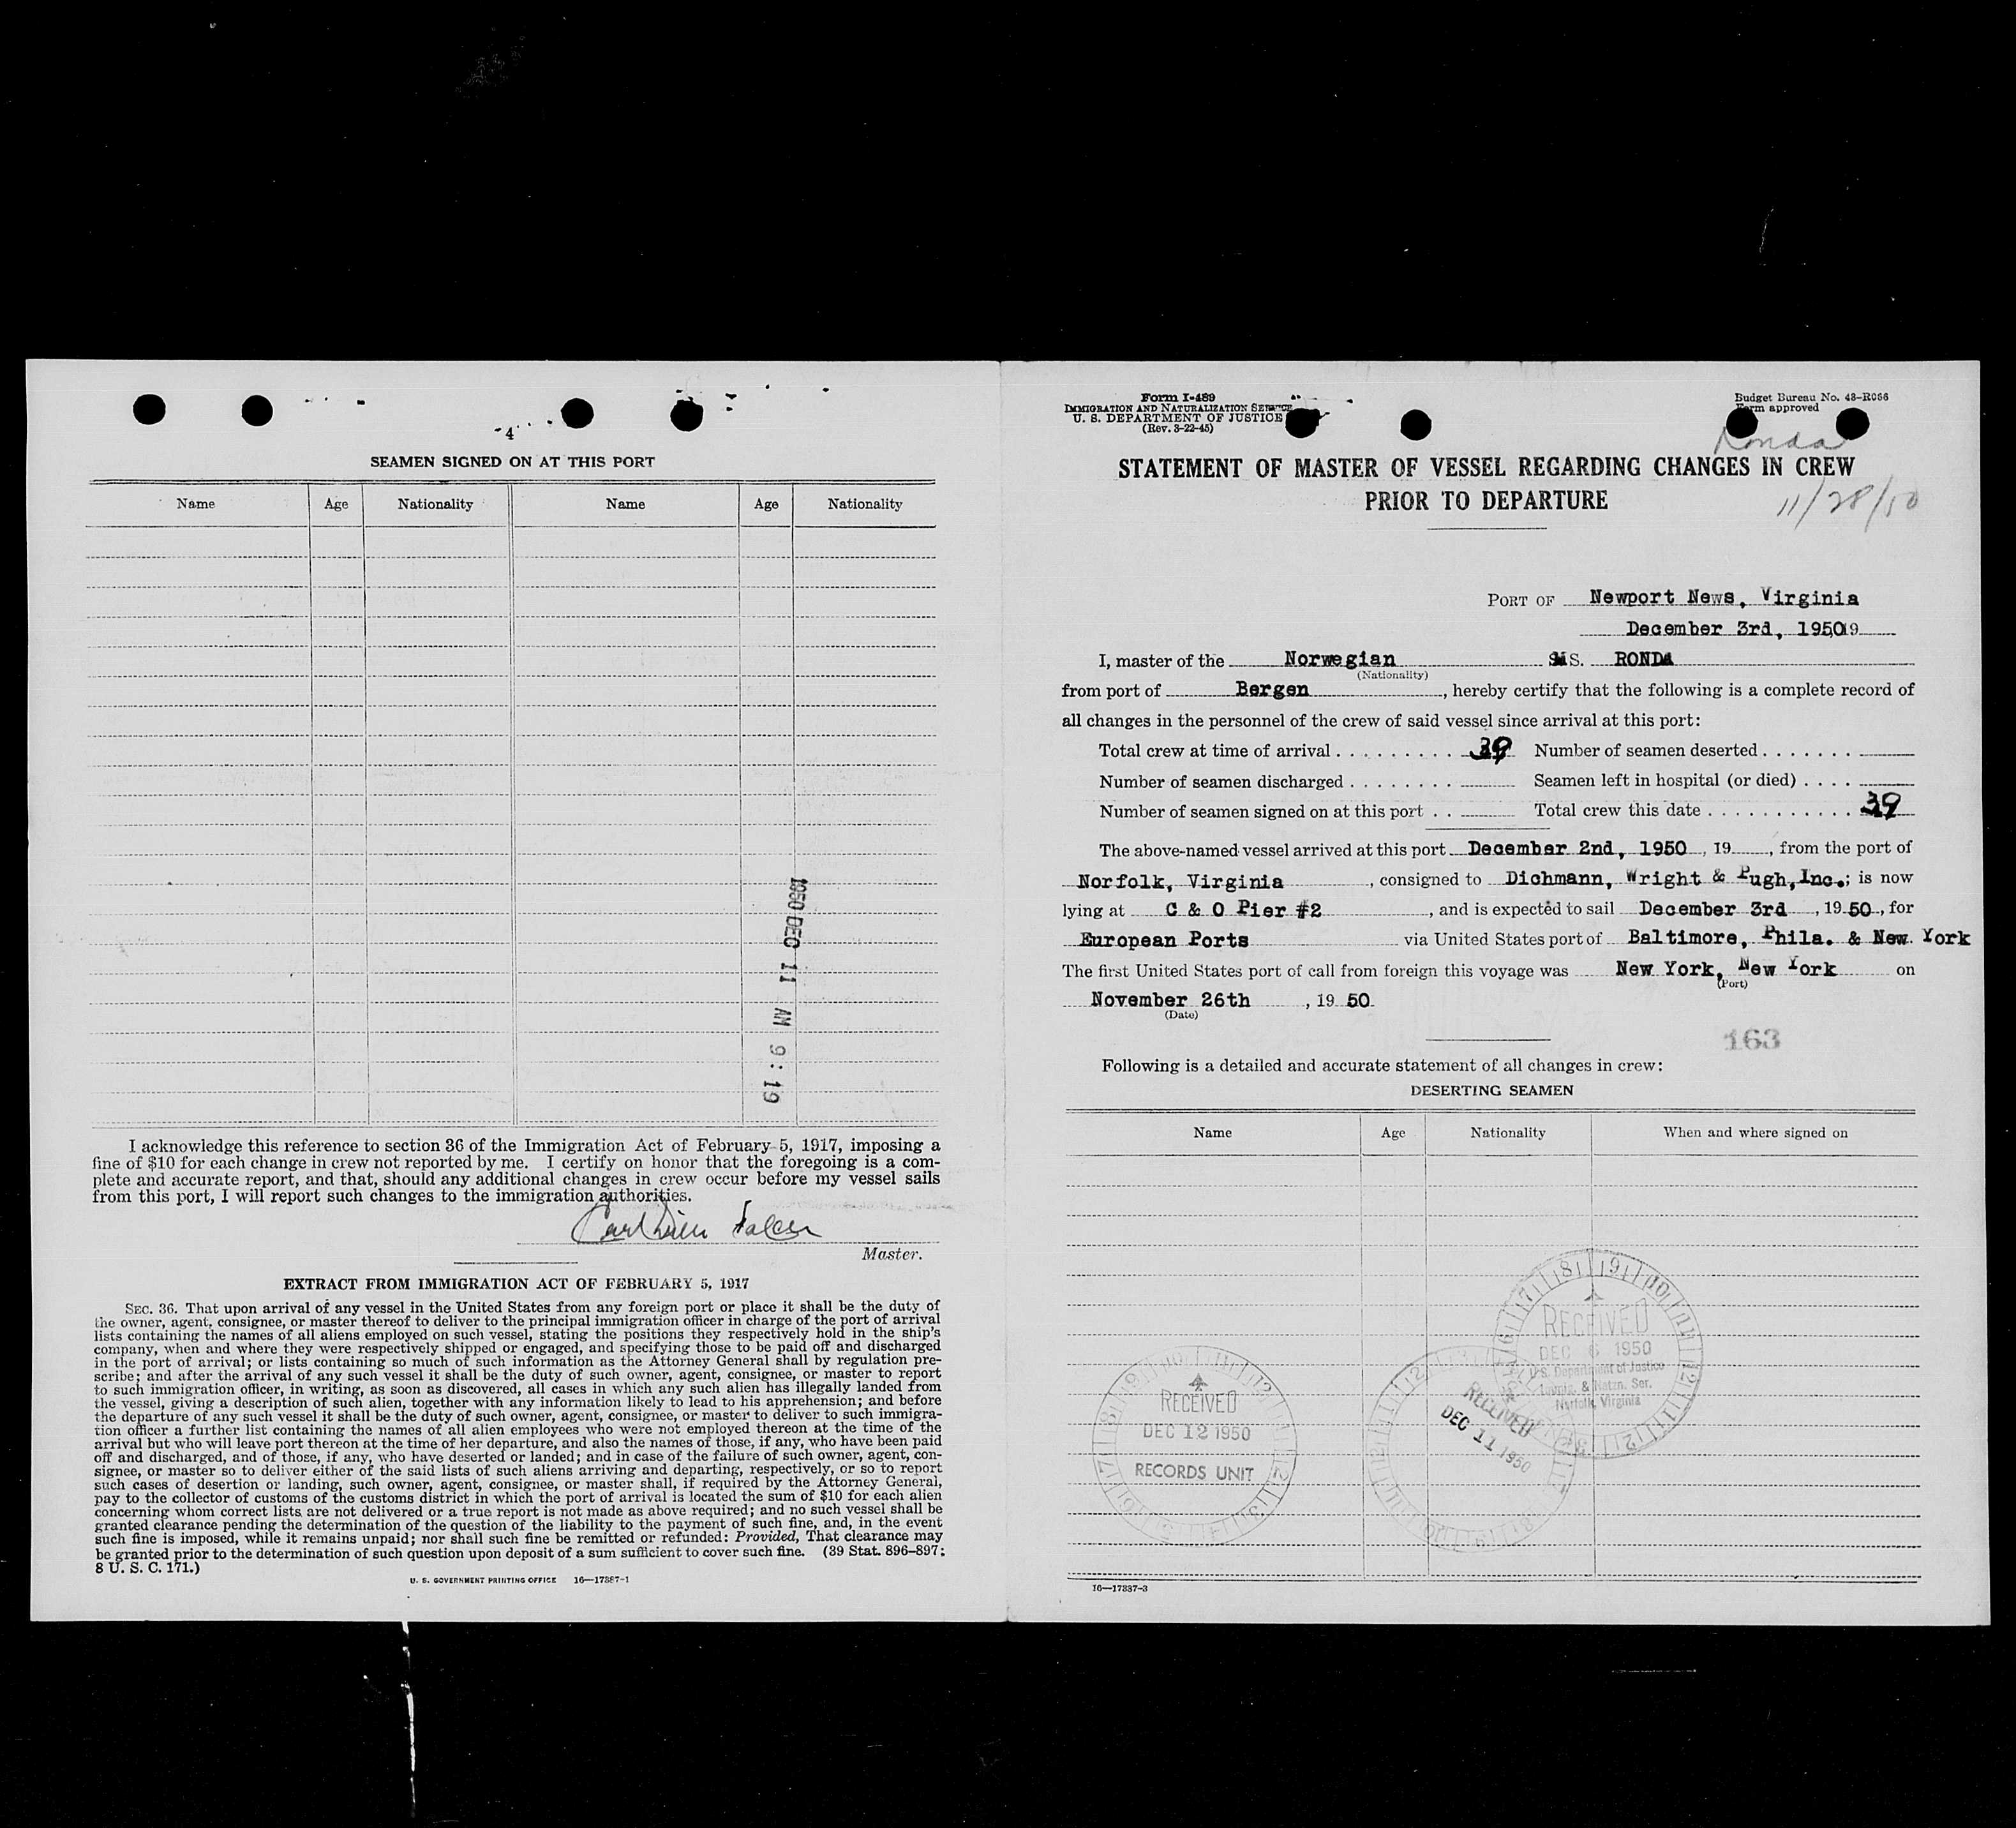 4
SEAMEN SIGNED ON AT THIS PORT
Name Age Nationality Name Age Nationality
1950 DEC 11 AM 9:19
I acknowledge this reference to section 36 of the Immigration Act of February 5, 1917, imposing a
fine of $10 for each change in crew not reported by me. I certify on honor that the foregoing is a com-
plete and accurate report, and that, should any additional changes in crew occur before my vessel sails
from this port, I will report such changes to the immigration authorities.
Master.
EXTRACT FROM IMMIGRATION ACT OF FEBRUARY 5, 1917
SEC. 36. That upon arrival of any vessel in the United States from any foreign port or place it shall be the duty of
the owner, agent, consignee, or master thereof to deliver to the principal immigration officer in charge of the port of arrival
lists containing the names of all aliens employed on such vessel, stating the positions they respectively hold in the ship's
company, when and where they were respectively shipped or engaged, and specifying those to be paid off and discharged
in the port of arrival; or lists containing so much of such information as the Attorney General shall by regulation pre-
scribe; and after the arrival of any such vessel it shall be the duty of such owner, agent, consignee, or master to report
to such immigration officer, in writing, as soon as discovered, all cases in which any such alien has illegally landed from
the vessel, giving a description of such alien, together with any information likely to lead to his apprehension; and before
the departure of any such vessel it shall be the duty of such owner, agent, consignee, or master to deliver to such immigra-
tion officer a further list containing the names of all alien employees who were not employed thereon at the time of the
arrival but who will leave port thereon at the time of her departure, and also the names of those, if any, who have been paid
off and discharged, and of those, if any, who have deserted or landed; and in case of the failure of such owner, agent, con-
signee, or master so to deliver either of the said lists of such aliens arriving and departing, respectively, or so to report
such cases of desertion or landing, such owner, agent, consignee, or master shall, if required by the Attorney General,
pay to the collector of customs of the customs district in which the port of arrival is located the sum of $10 for each alien
concerning whom correct lists are not delivered or a true report is not made as above required; and no such vessel shall be
granted clearance pending the determination of the question of the liability to the payment of such fine, and, in the event
such fine is imposed, while it remains unpaid; nor shall such fine be remitted or refunded: Provided, That clearance may
be granted prior to the determination of such question upon deposit of a sum sufficient to cover such fine. (39 Stat. 896–897;
8 U. S. C. 171.)
U. S. GOVERNMENT PRINTING OFFICE 16—17387-1
Form I-489
IMMIGRATION AND NATURALIZATION SERVICE
U. S. DEPARTMENT OF JUSTICE
(Rev. 3-22-45)
Budget Bureau No. 43-R066
Form approved
Ronda
STATEMENT OF MASTER OF VESSEL REGARDING CHANGES IN CREW
PRIOR TO DEPARTURE
11/28/50
PORT OF Newport News, Virginia
December 3rd, 1950 19
I, master of the Norwegian S. RONDA
(Nationality)
from port of Bergen, hereby certify that the following is a complete record of
all changes in the personnel of the crew of said vessel since arrival at this port:
Total crew at time of arrival 39 Number of seamen deserted
Number of seamen discharged Seamen left in hospital (or died)
Number of seamen signed on at this port Total crew this date 39
The above-named vessel arrived at this port December 2nd, 1950, 19, from the port of
Norfolk, Virginia, consigned to Dichmann, Wright & Pugh, Inc.; is now
lying at C & O Pier #2, and is expected to sail December 3rd, 19 50, for
European Ports via United States port of Baltimore, Phila. & New York
The first United States port of call from foreign this voyage was New York, New York on
(Port)
November 26th, 19 50
(Date)
163
Following is a detailed and accurate statement of all changes in crew:
DESERTING SEAMEN
Name Age Nationality When and where signed on
RECEIVED
DEC 6 1950
U.S. Department of Justice
Immig. & Natzn. Ser.
Norfolk, Virginia
RECEIVED
DEC 12 1950
RECORDS UNIT
RECEIVED
DEC 11 1950
16—17387-3